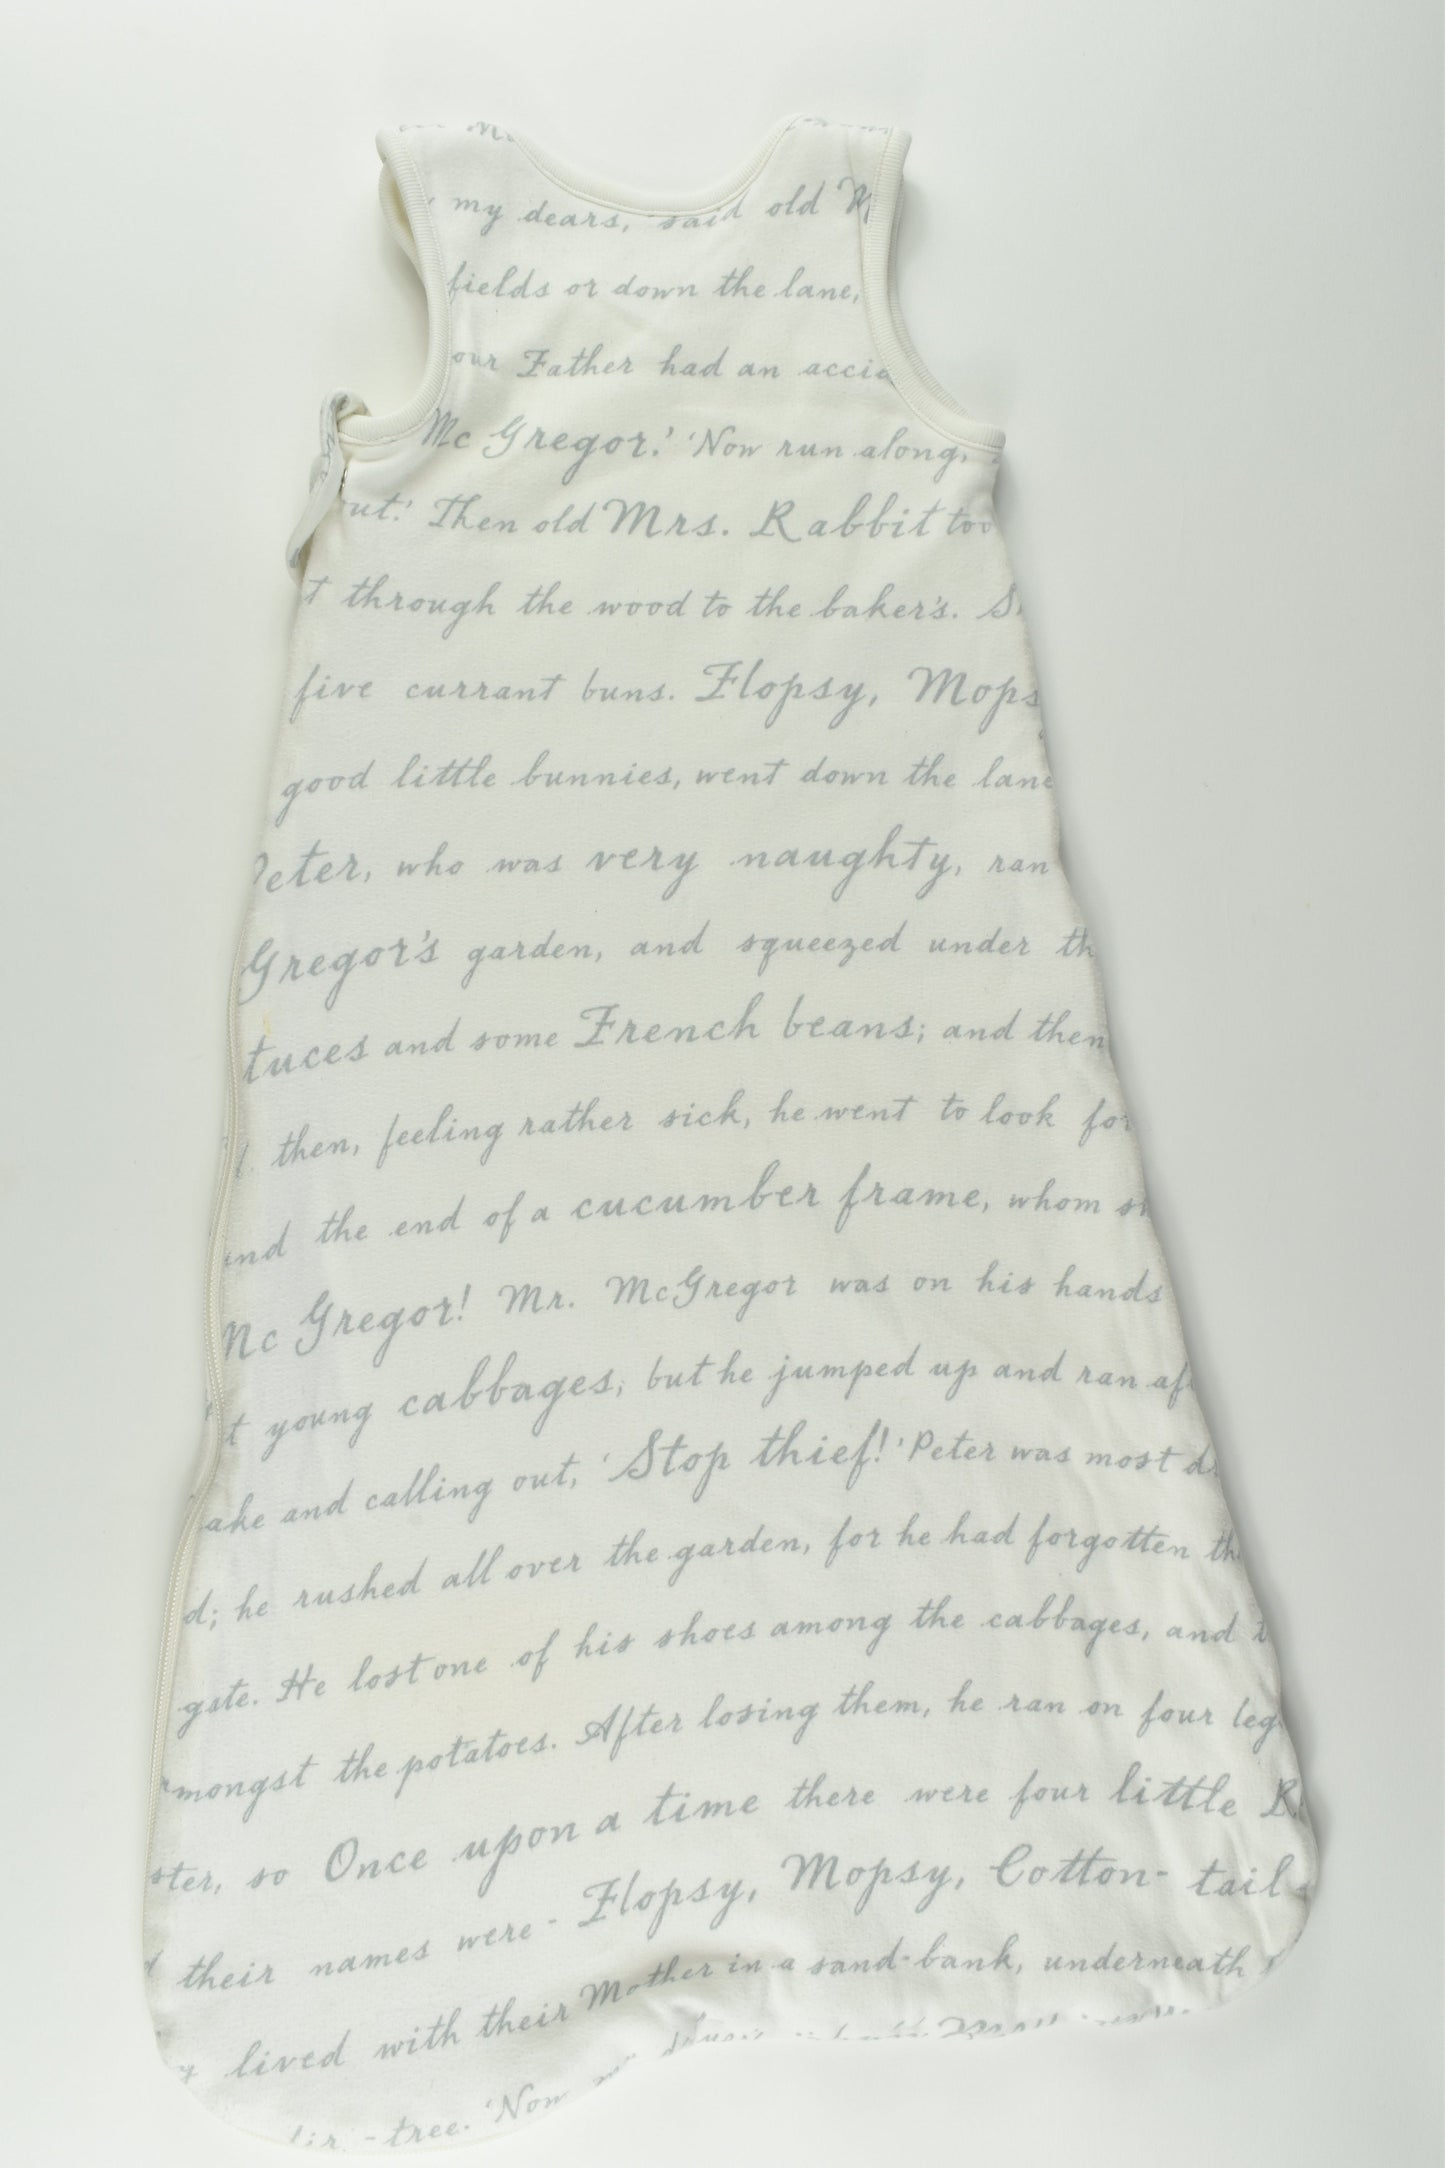 my dears, 'said old M
fields or down the lane,
our Father had an accid
Mc Gregor.' 'Now run along,
out.' Then old Mrs. Rabbit too
t through the wood to the baker's. S
five currant buns. Flopsy, Mops
good little bunnies, went down the lane
Peter, who was very naughty, ran
Gregor's garden, and squeezed under th
tuces and some French beans; and then
then, feeling rather sick, he went to look for
and the end of a cucumber frame, whom s
Mc Gregor! Mr. McGregor was on his hands
t young cabbages; but he jumped up and ran af
ake and calling out, 'Stop thief!' Peter was most d
d; he rushed all over the garden, for he had forgotten th
gate. He lost one of his shoes among the cabbages, and t
amongst the potatoes. After losing them, he ran on four leg
ster, so Once upon a time there were four little R
d their names were - Flopsy, Mopsy, Cotton- tail
y lived with their Mother in a sand-bank, underneath
fir -tree. 'Now